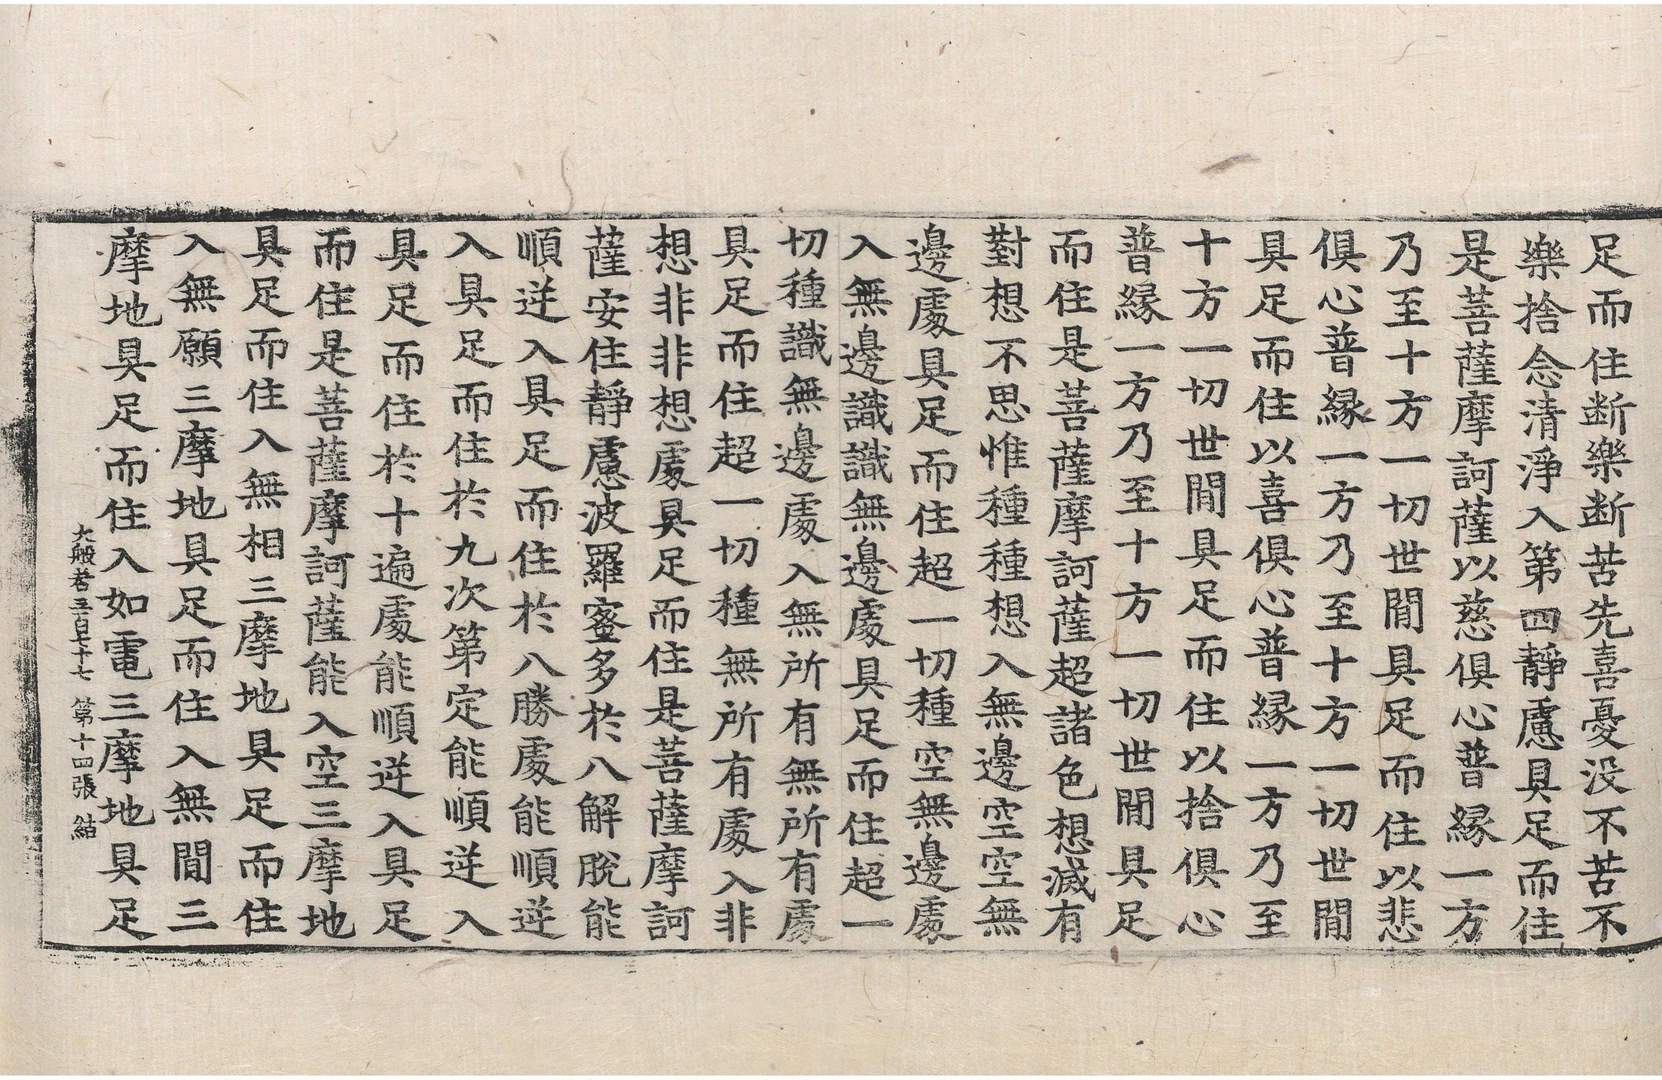 足而住断樂断苦先喜憂没不苦不
樂捨念清淨入第四靜慮具足而住
是菩薩摩訶薩以慈俱心普縁一方
乃至十方一切世間具足而住以悲
俱心普縁一方乃至十方一切世間
具足而住以喜俱心普縁一方乃至
十方一切世間具足而住以捨俱心
普縁一方乃至十方一切世間具足
而住是菩薩摩訶薩超諸色想滅有
對想不思惟種種想入無邊空空無
邊處具足而住超一切種空無邊處
入無邊識識無邊處具足而住超一
切種識無邊處入無所有無所有處
具足而住超一切種無所有處入非
想非非想處具足而住是菩薩摩訶
薩安住靜慮波羅蜜多於八解脫能
順逆入具足而住於八勝處能順逆
入具足而住於九次第定能順逆入
具足而住於十遍處能順逆入具足
而住是菩薩摩訶薩能入空三摩地
具足而住入無相三摩地具足而住
入無願三摩地具足而住入無間三
摩地具足而住入如電三摩地具足
大般若三百七十七 第十四張 結